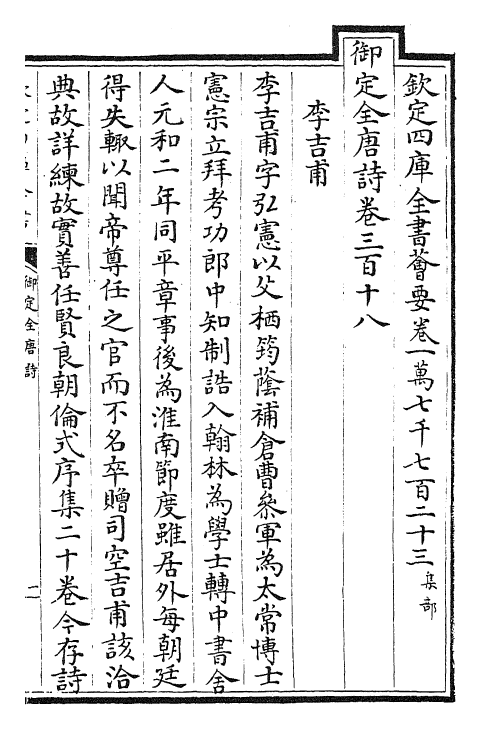 欽定四庫全書薈要卷一萬七千七百二十三 集部
御定全唐詩卷三百十八
李吉甫
李吉甫字弘憲以父栖筠蔭補倉曹叅軍為太常博士
憲宗立拜考功郎中知制誥入翰林為學士轉中書舍
人元和二年同平章事後為淮南節度雖居外每朝廷
得失輙以聞帝尊任之官而不名卒贈司空吉甫該洽
典故詳練故實善任賢良朝倫式序集二十卷今存詩
御定全唐詩